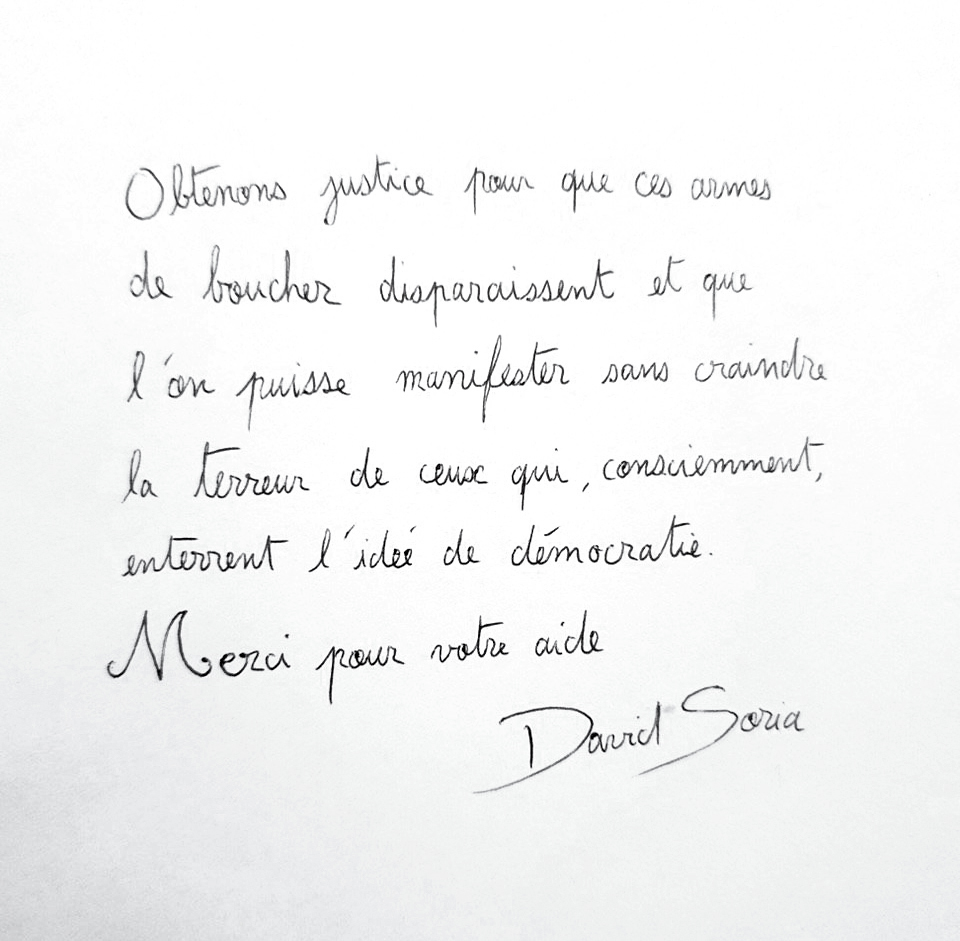 Obtenons justice pour que ces armes
de boucher disparaissent et que
l'on puisse manifester sans craindre
la terreur de ceux qui, consciemment,
enterrent l'idée de démocratie.
Merci pour votre aide
David Soria